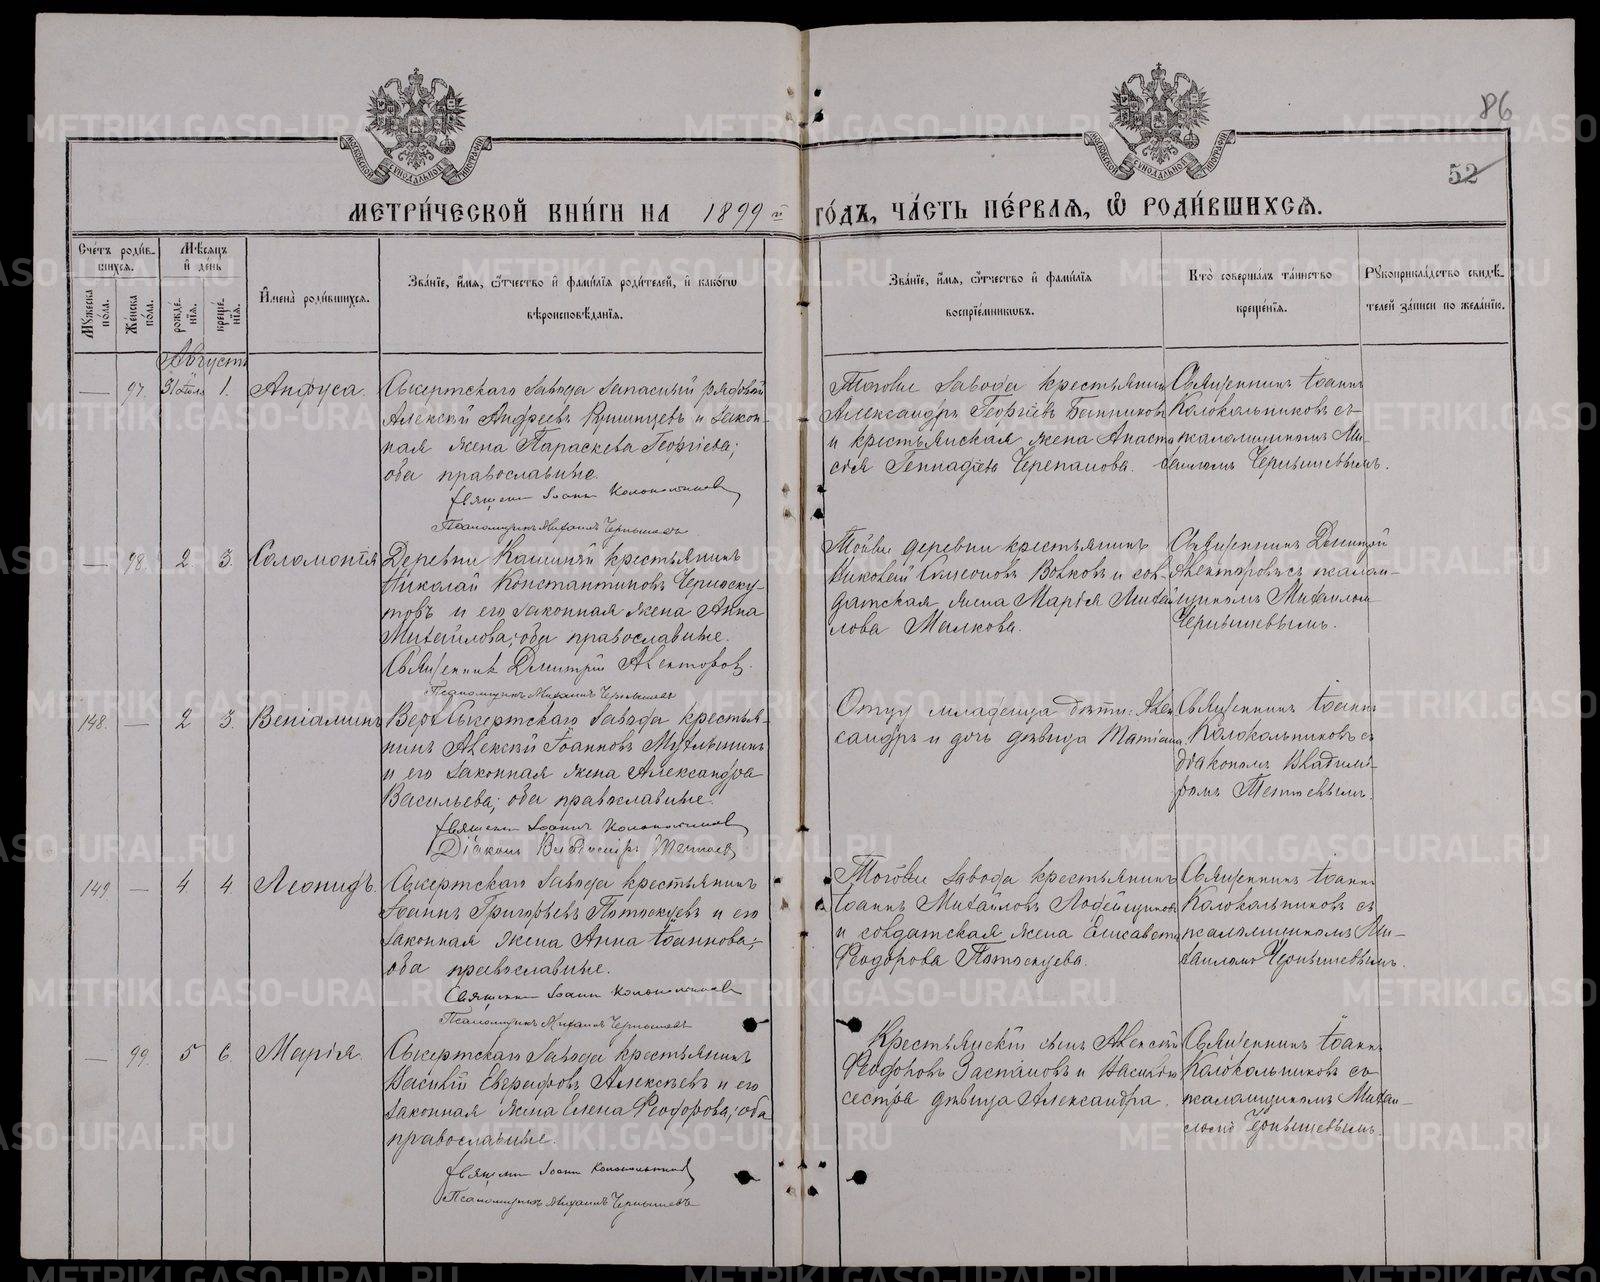 86
52
МЕТРИ́ЧЕСКОЙ КНИ́ГИ НА 1899 й ГО́ДЪ, ЧА́СТЬ ПЕ́РВАѦ, Ѽ РОДИ́ВШИХСѦ.
Сче́тъ роди́в-
шихсѧ.
Мꙋжеска по́ла.
Же́нска по́ла.
Мѣ́сѧцъ
и҆ де́нь
рожде́-
нїѧ.
креще́-
нїѧ.
И҆мена̀ роди́вшихсѧ.
Зва́нїе, и҆́мѧ, ѻ҆́тчество и҆ фами́лїѧ роди́телей, и҆ како́гѡ
вѣроисповѣ́данїѧ.
Зва́нїе, и҆́мѧ, ѻ҆́тчество и҆ фами́лїѧ
воспрїе́мниковъ.
Кто̀ соверша́лъ та́инство
креще́нїѧ.
Рꙋкоприкла́дство свидѣ́-
телей за́писи по жела́нїю.
Августъ
— 97. 31 Іюля 1. Анфуса.
Сысертскаго завода запасный рядовой
Алексѣй Андреевъ и закон-
ная жена Параскева Георгіева;
оба православные.
Священникъ Іоаннъ Колокольниковъ
Псаломщикъ Михаилъ Чернышевъ
Тогоже завода крестьянинъ
Александръ Георгіевъ
и крестьянская жена Анаста-
сія Геннадіева Черепанова.
Священникъ Іоаннъ
Колокольниковъ съ
псаломщикомъ Ми-
хаиломъ Чернышевымъ.
— 98. 2 3. Соломонія
Деревни Кашиной крестьянинъ
Николай Константиновъ Черноску-
товъ и его законная жена Анна
Михайлова; оба православные.
Священникъ Дмитрій Авенторовъ.
Псаломщикъ Михаилъ Чернышевъ
Тойже деревни крестьянинъ
Симеоновъ Волковъ и сол-
датская жена Марія Михай-
лова Малкова.
Священникъ Дмитрій
Авенторовъ съ псалом-
щикомъ Михаиломъ
Чернышевымъ.
148. — 2 3. Веніаминъ
Верхсысертскаго завода крестья-
нинъ Алексѣй Іоанновъ
и его законная жена Александра
Васильева; оба православные.
Священникъ Іоаннъ Колокольниковъ
Діаконъ Владиміръ
Отца младенца дѣти: Алек-
сандръ и дочь дѣвица Татіана.
Священникъ Іоаннъ
Колокольниковъ съ
діакономъ Владимі-
ромъ
149 — 4 4 Леонидъ.
Сысертскаго завода крестьянинъ
Іоаннъ Григорьевъ Потоскуевъ и его
законная жена Анна Іоаннова;
оба православные.
Священникъ Іоаннъ Колокольниковъ
Псаломщикъ Михаилъ Чернышевъ
Тогоже завода крестьянинъ
Іоаннъ Михайловъ Лодейщиковъ
и солдатская жена Елисавета
Ѳеодорова Потоскуева.
Священникъ Іоаннъ
Колокольниковъ съ
псаломщикомъ Ми-
хаиломъ Чернышевымъ.
— 99. 5 6. Марія.
Сысертскаго завода крестьянинъ
Василій Евграфовъ Алексѣевъ и его
законная жена Елена Ѳеодорова; оба
православные.
Священникъ Іоаннъ Колокольниковъ
Псаломщикъ Михаилъ Чернышевъ
Крестьянскій сынъ Алексѣй
Заспановъ и
сестра дѣвица Александра.
Священникъ Іоаннъ
Колокольниковъ съ
псаломщикомъ Михаи-
ломъ Чернышевымъ.
METRIKI.GASO-URAL.RU